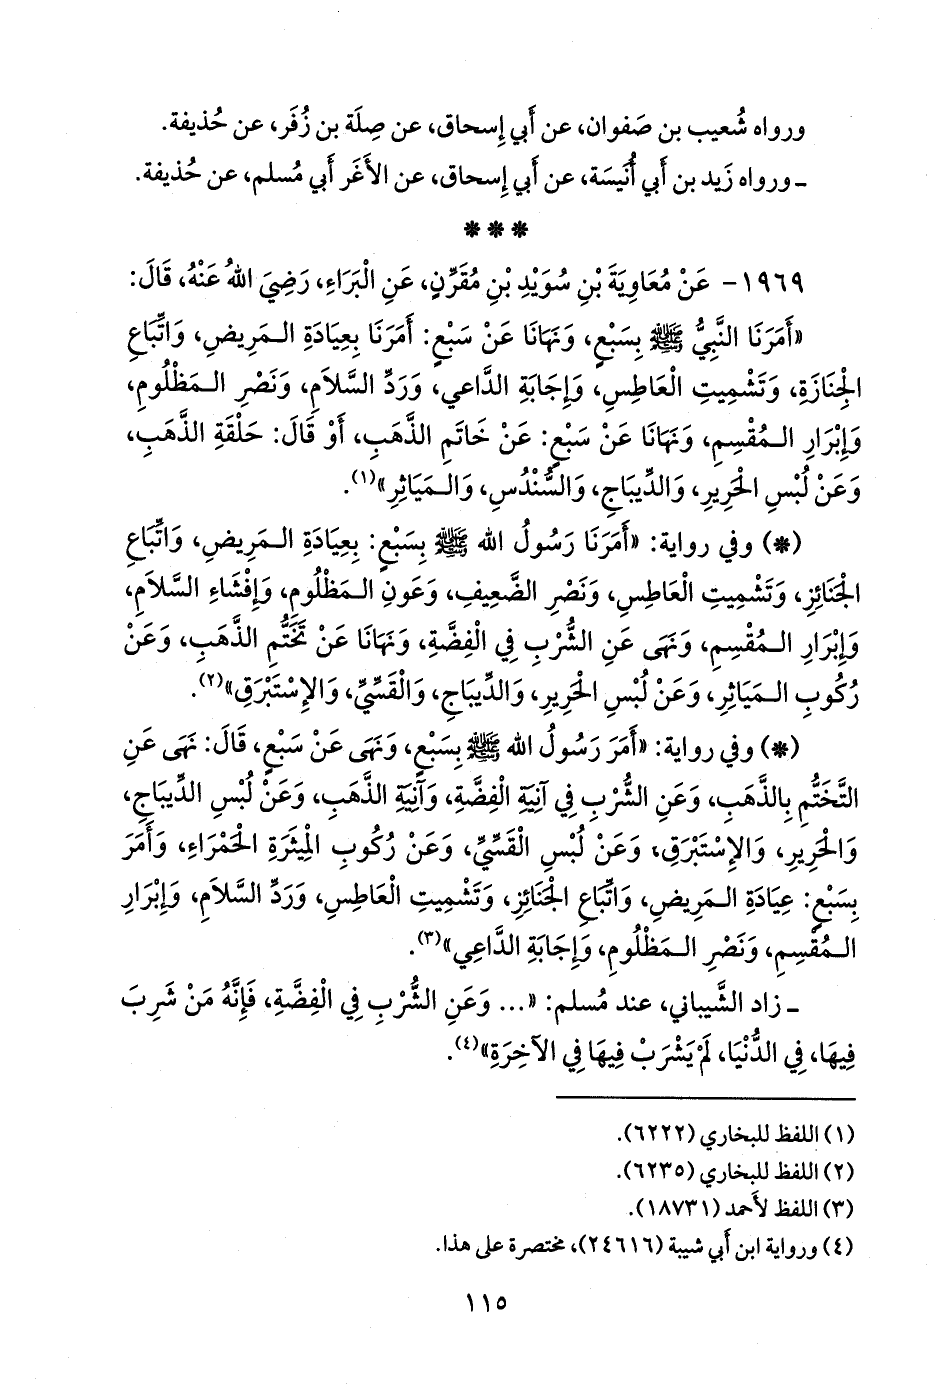 ورواه شُعيب بن صَفوان، عن أَبي إِسحاق، عن صِلَة بن زُفَر، عن حُذيفة.
ـ ورواه زَيد بن أَبي أُنَيسَة، عن أَبي إِسحاق، عن الأَغَر أَبي مُسلم، عن حُذيفة.
***
١٩٦٩- عَنْ مُعَاوِيَةَ بْنِ سُوَيْدِ بْنِ مُقَرِّنٍ، عَنِ الْبَرَاءِ، رَضِيَ اللهُ عَنْهُ، قَالَ:
«أَمَرَنَا النَّبِيُّ ﷺ بِسَبْعٍ، وَنَهَانَا عَنْ سَبْعٍ: أَمَرَنَا بِعِيَادَةِ الـمَرِيضِ، وَاتِّبَاعِ
الْجِنَازَةِ، وَتَشْمِيتِ الْعَاطِسِ، وَإِجَابَةِ الدَّاعِي، وَرَدِّ السَّلَامِ، وَنَصْرِ الـمَظْلُومِ،
وَإِبْرَارِ الـمُقْسِمِ، وَنَهَانَا عَنْ سَبْعٍ: عَنْ خَاتَمِ الذَّهَبِ، أَوْ قَالَ: حَلْقَةِ الذَّهَبِ،
وَعَنْ لُبْسِ الْحَرِيرِ، وَالدِّيبَاجِ، وَالسُّنْدُسِ، وَالـمَيَاثِرِ»(١).
(*) وفي رواية: «أَمَرَنَا رَسُولُ الله ﷺ بِسَبْعٍ: بِعِيَادَةِ الـمَرِيضِ، وَاتِّبَاعِ
الْجَنَائِزِ، وَتَشْمِيتِ الْعَاطِسِ، وَنَصْرِ الضَّعِيفِ، وَعَونِ الـمَظْلُومِ، وَإِفْشَاءِ السَّلَامِ،
وَإِبْرَارِ الـمُقْسِمِ، وَنَهَى عَنِ الشُّرْبِ فِي الْفِضَّةِ، وَنَهَانَا عَنْ تَخَتُّمِ الذَّهَبِ، وَعَنْ
رُكُوبِ الـمَيَاثِرِ، وَعَنْ لُبْسِ الْحَرِيرِ، وَالدِّيبَاجِ، وَالْقَسِّيِّ، وَالإِسْتَبْرَقِ»(٢).
(*) وفي رواية: «أَمَرَ رَسُولُ الله ﷺ بِسَبْعٍ، وَنَهَى عَنْ سَبْعٍ، قَالَ: نَهَى عَنِ
التَّخَتُّمِ بِالذَّهَبِ، وَعَنِ الشُّرْبِ فِي آنِيَةِ الْفِضَّةِ، وَآنِيَةِ الذَّهَبِ، وَعَنْ لُبْسِ الدِّيبَاجِ،
وَالْحَرِيرِ، وَالإِسْتَبْرَقِ، وَعَنْ لُبْسِ الْقَسِّيِّ، وَعَنْ رُكُوبِ الْمِيثَرَةِ الْحَمْرَاءِ، وَأَمَرَ
بِسَبْعٍ: عِيَادَةِ الـمَرِيضِ، وَاتِّبَاعِ الْجَنَائِزِ، وَتَشْمِيتِ الْعَاطِسِ، وَرَدِّ السَّلَامِ، وَإِبْرَارِ
الـمُقْسِمِ، وَنَصْرِ الـمَظْلُومِ، وَإِجَابَةِ الدَّاعِي»(٣).
ـ زاد الشَّيباني، عند مُسلم: «... وَعَنِ الشُّرْبِ فِي الْفِضَّةِ، فَإِنَّهُ مَنْ شَرِبَ
فِيهَا، فِي الدُّنْيَا، لَمْ يَشْرَبْ فِيهَا فِي الآخِرَةِ»(٤).
(١) اللفظ للبخاري (٦٢٢٢).
(٢) اللفظ للبخاري (٦٢٣٥).
(٣) اللفظ لأَحمد (١٨٧٣١).
(٤) ورواية ابن أَبي شيبة (٢٤٦١٦)، مختصرة على هذا.
١١٥